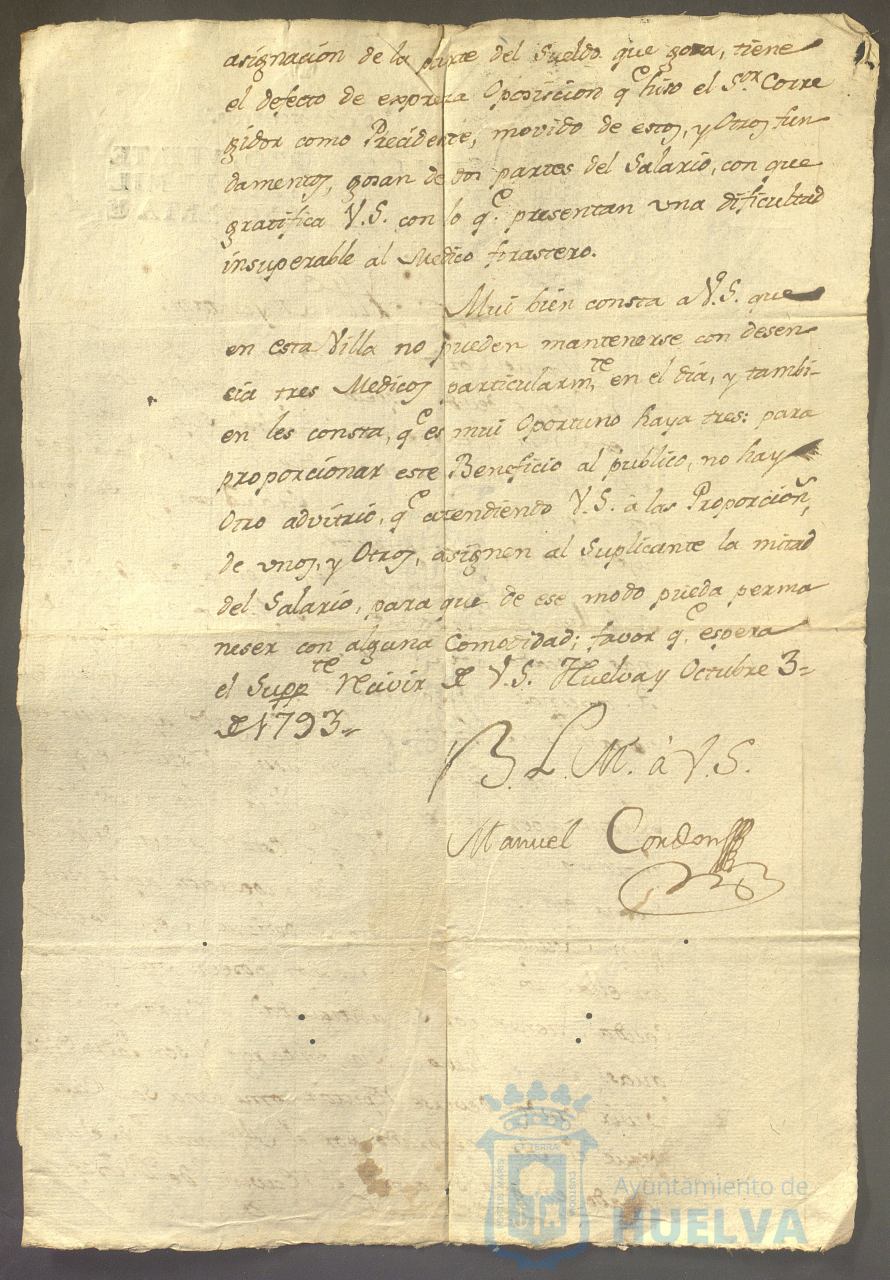 asignación de la parte del Sueldo que goza, tiene
el defecto de expreza Oposicion q.e hiso el S.or Corre
gidor como Precidente, movido de estos, y Otros fun
damentos, gosan de dos partes del Salario, con que
gratifica V.S. con lo q.e presentan una dificultad
insuperable al Medico forastero.
Mui bien consta a V.S. que
en esta Villa no pueden mantenerse con desen
cia tres Medicos particularm.te en el dia, y tambi-
en les consta, q.e es mui Oportuno haya tres: para
proporcionar este Beneficio al publico, no hay
Otro advitrio, q.e atendiendo V.S. à las Proporcion,
de unos, y Otros, asignen al Suplicante la mitad
del Salario, para que de ese modo pueda perma
neser con alguna Comodidad; favor q.e espera
el Supp.te de V.S. Huelva y Octubre 3=
de 1793=
B. L. M. à V.S.
Manuel Cordon
Ayuntamiento de
HUELVA